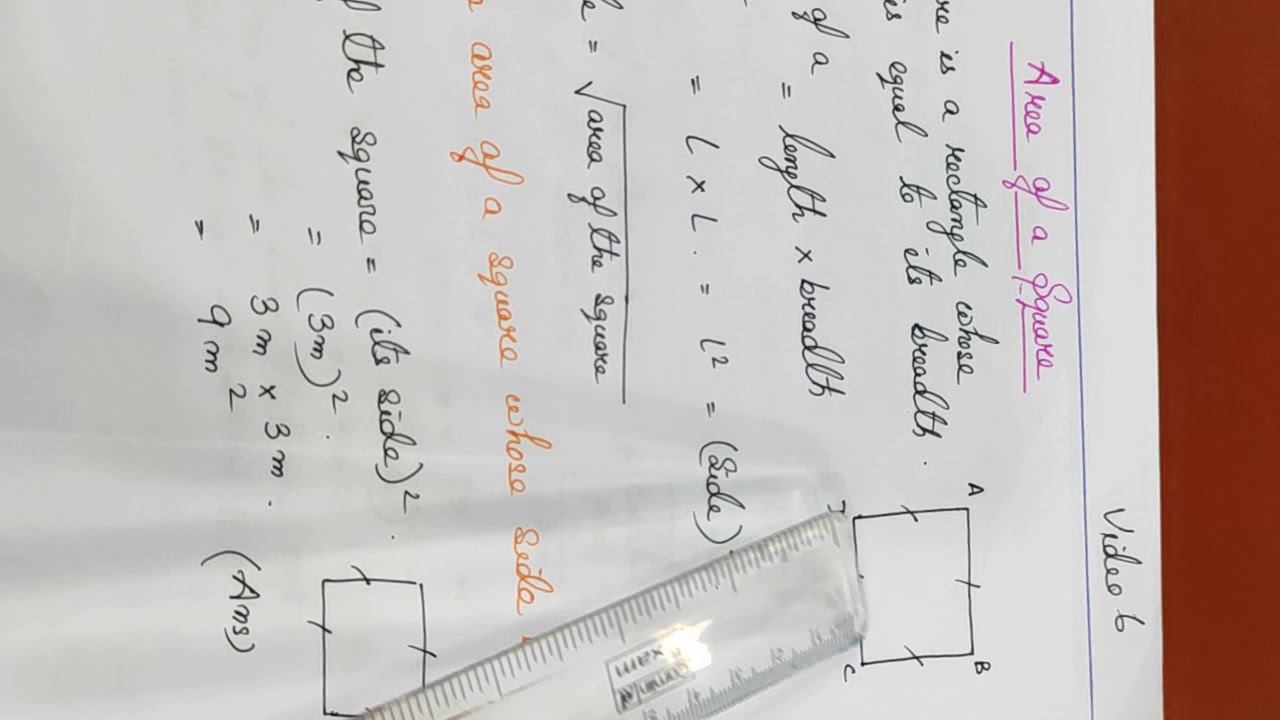 Video 6
Area of a Square
is a rectangle whose
is equal to its breadth.
A
B
C
of a = length × breadth
= L × L. = L² = (Side)
= √area of the square
area of a square whose side
the square = (its side)².
= (3m)².
= 3m × 3m.
= 9m² (Ans)